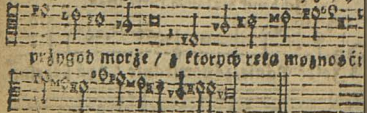 przygod morze / z ktorych ręka mozności